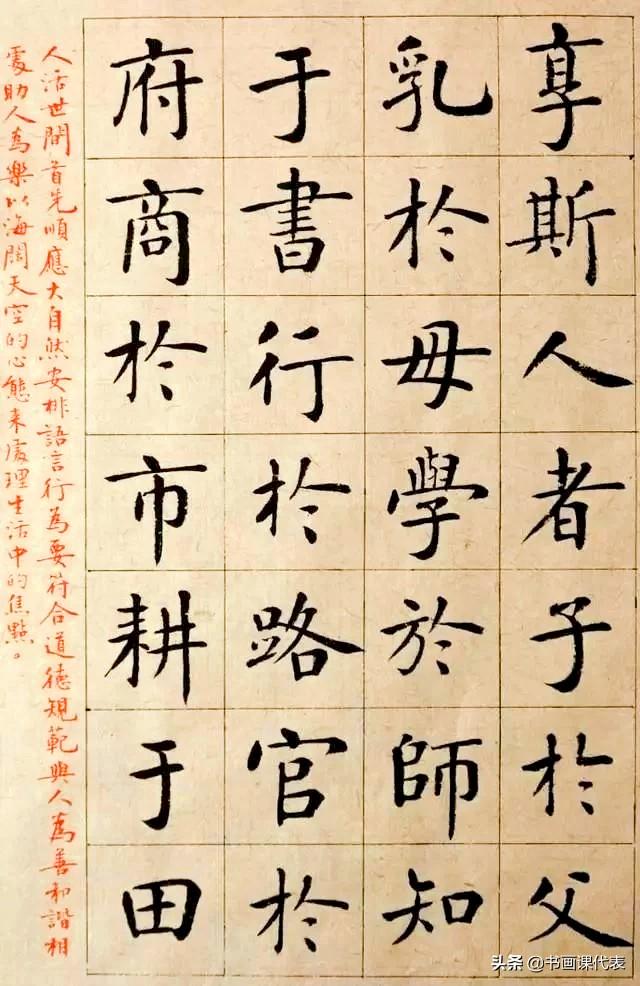 享斯人者子於父
乳於母學於師知
于書行於路官於
府商於市耕于田
人活世間首先順應大自然安排語言行為要符合道德規範與人為善和諧相
處助人為樂以海闊天空的心態来處理生活中的焦點。
头条 @书画课代表